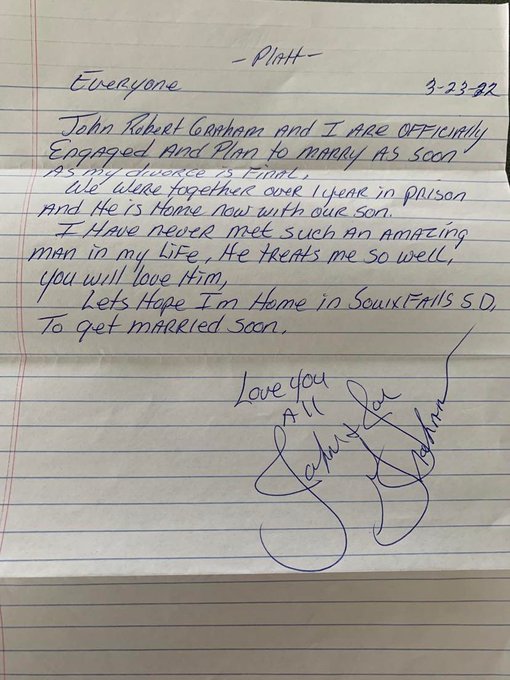 -Platt-
Everyone 3-23-22
John Robert Graham and I are officially
Engaged and Plan to marry as soon
as my divorce is final,
We were together over 1 year in prison
and He is Home now with our son.
I Have never met such an amazing
man in my life, He treats me so well,
you will love Him,
Lets Hope I'm Home in SouixFalls S.D,
To get married soon.
Love you
All
John & Joe
Graham